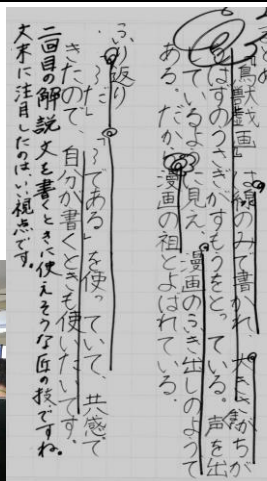 まとめ
『鳥獣戯画』は線のみで書かれ、大きさがちが
うはずのうさぎがすもうをとっている。声を出
しているように見え、漫画のふき出しのようで
ある。だから漫画の祖とよばれている。
ふり返り
「〜だ」「〜である」を使っていて、共感で
きたので、自分が書くときも使いたいです。
二回目の解説文を書くときに使えそうな匠の技ですね。
文末に注目したのは、いい視点です。